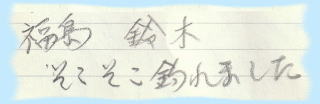 福島 鈴木
そこそこ釣れました